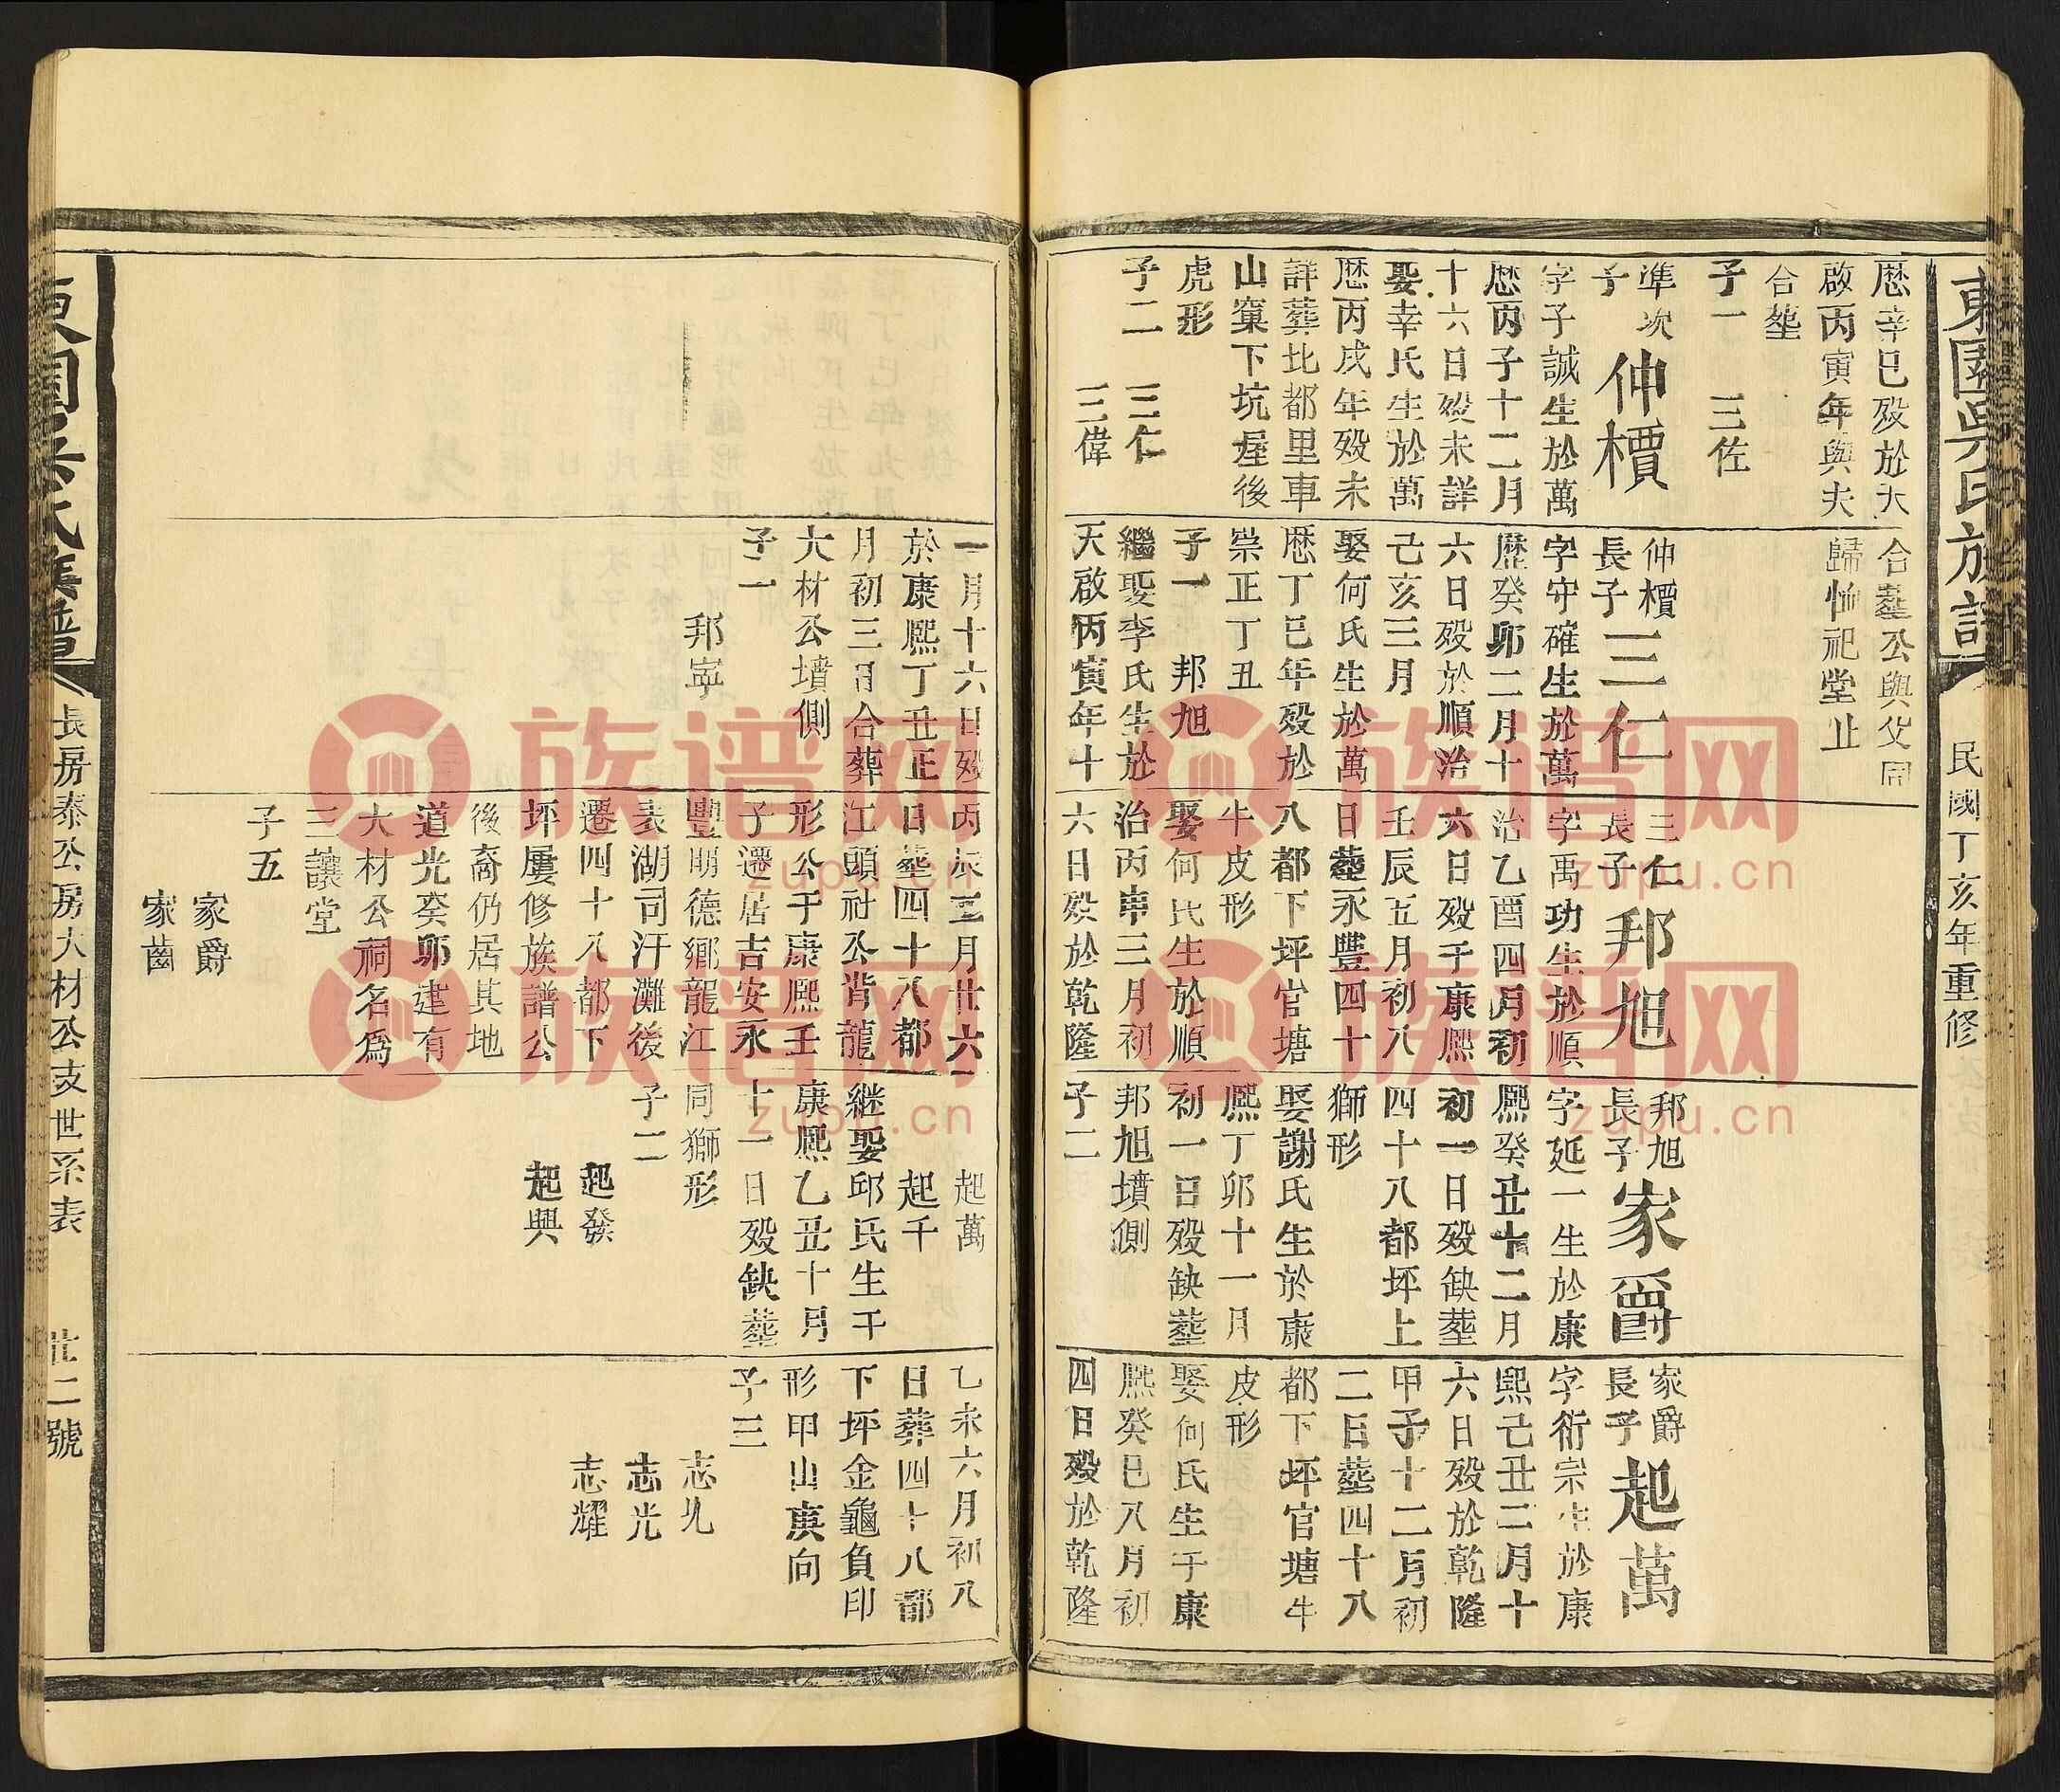 東園吳氏族譜
民國丁亥年重修
歷辛巳殁於天
啟丙寅年與夫
合塟
子一 三佐
準次
子
仲櫝
字子誠生於萬
歷丙子十二月
十六日殁未詳
娶幸氏生於萬
歷丙戌年殁未
詳葬比都里車
山窠下坑屋後
虎形
子二 三仁
三偉
合塟公與父同
歸恤祀堂止
仲櫝
長子
三仁
字守確生於萬
歷癸卯二月十
六日殁於順治
己亥三月
娶何氏生於萬
歷丁巳年殁於
崇正丁丑
子一 邦旭
繼娶李氏生於
天啟丙寅年十
三仁
長子
邦旭
字禹功生於順
治乙酉四月初
六日殁于康熙
壬辰五月初八
日塟永豐四十
八都下坪官塘
牛皮形
娶何氏生於順
治丙申三月初
六日殁於乾隆
邦旭
長子
家爵
字延一生於康
熙癸丑十二月
初一日殁缺塟
四十八都坪上
獅形
娶謝氏生於康
熙丁卯十一月
初一日殁缺塟
邦旭墳側
子二
家爵
長子
起萬
字衍宗生於康
熙己丑二月十
六日殁於乾隆
甲子十二月初
二日塟四十八
都下坪官塘牛
皮形
娶何氏生于康
熙癸巳八月初
四日殁於乾隆
一月十六日殁
於康熙丁丑正
月初三日合葬
大材公墳側
子一
邦寧
丙辰三月廿六
日塟四十八都
江頭社公背龍
形公于康熙壬
子遷居吉安永
豐明德鄉龍江
表湖司汗灘後
遷四十八都下
坪屢修族譜公
後裔仍居其地
道光癸卯建有
大材公祠名為
三讓堂
子五
家爵
家齒
起萬
起千
继娶邱氏生于
康熙乙丑十月
十一日殁缺塟
同獅形
子二
起發
起興
乙未六月初八
日葬四十八都
下坪金龜負印
形甲山庚向
子三
志允
志光
志耀
東園吳氏族譜
長房泰公房大材公支世系表
廿二號
族谱网
zupu.cn
族谱网
zupu.cn
族谱网
zupu.cn
族谱网
zupu.cn